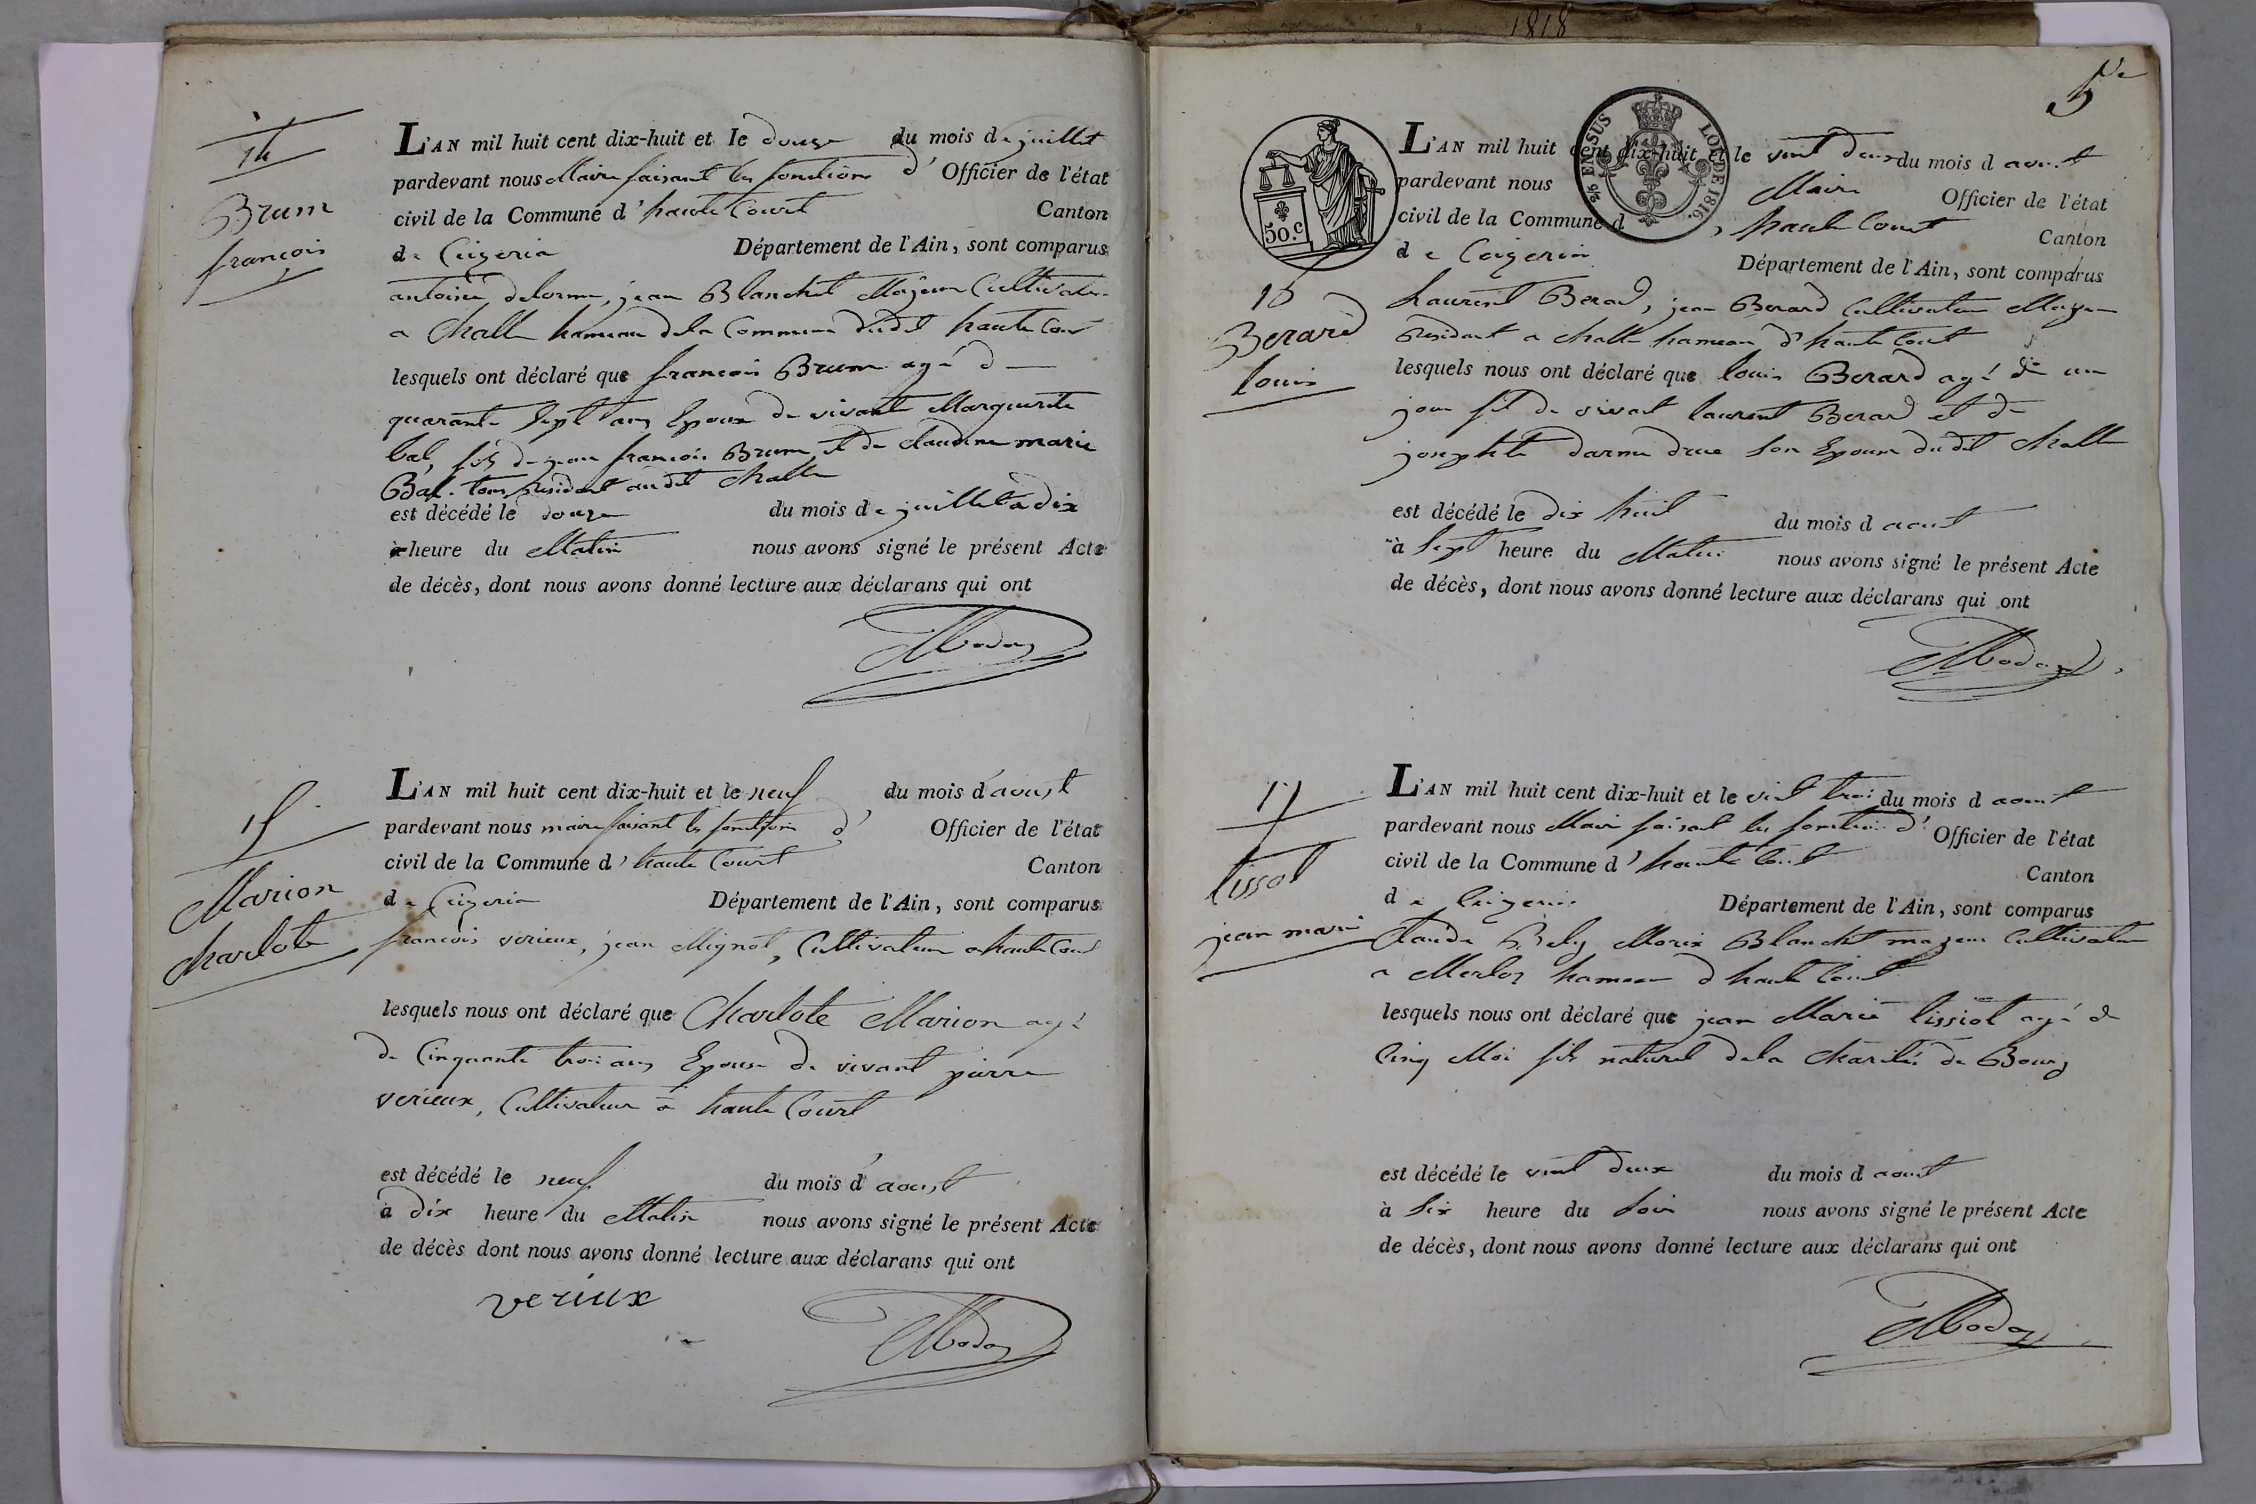 14
Brum
françois
L'AN mil huit cent dix-huit et le douze du mois de juillet
pardevant nous Maire faisant les fonctions d' Officier de l'état
civil de la Commune d'haute Court Canton
de Ceizeria Département de l'Ain, sont comparus
antoine delorme, jean Blanchet Majeur Cultivateur
a Challe hameau dela Commune dudit haute Cour
lesquels ont déclaré que françois Brum agé d
quarante sept ans Epoux de vivante Marguerite
bal, fils de jean françois Brum, et de claudine marie
Bal. tous résidant audit Challe
est décédé le douze du mois de juillet à dix
heure du Matin nous avons signé le présent Acte
de décès, dont nous avons donné lecture aux déclarans qui ont
15
Marion
charlote
L'AN mil huit cent dix-huit et le neuf du mois d'aoust
pardevant nous maire faisant les fonction d' Officier de l'état
civil de la Commune d'haute Court Canton
de Ceizeria Département de l'Ain, sont comparus
francois verieux, jean Mignot, Cultivateur a haute Court
lesquels nous ont déclaré que Charlote Marion agé
de Cinquante trois ans Epouse de vivant pierre
verieux, Cultivateur a haute Court
est décédé le neuf du mois d'aoust
à dix heure du Matin nous avons signé le présent Acte
de décès dont nous avons donné lecture aux déclarans qui ont
veriux
1818
5e
50.c
2/5 EN SUS
LOI DE 1816.
L'AN mil huit cent dix-huit et le vint deux du mois d aout
pardevant nous Maire Officier de l'état
civil de la Commune d haute Court Canton
de Ceizeria Département de l'Ain, sont comparus
16
Berard
louis
Laurent Berard, jean Berard Cultivateur Majeur
Résidant a challe hameau d'haute Court
lesquels nous ont déclaré que louis Berard agé de un
jour fil de vivant laurent Berard et de
josephte son Epouse dudit Challe
est décédé le dix huit du mois d aout
à sept heure du Matin nous avons signé le présent Acte
de décès, dont nous avons donné lecture aux déclarans qui ont
17
tissot
jean marie
L'AN mil huit cent dix-huit et le vint troi du mois d aout
pardevant nous Maire faisant les fonction d' Officier de l'état
civil de la Commune d'haute Court Canton
de Ceizeria Département de l'Ain, sont comparus
Claude Bely Morix Blanchet majeur Cultivateur
a Merloz hameau d haute Court
lesquels nous ont déclaré que jean Marie tissiot agé de
Cinq Moi fils naturel dela Charité de Bourg
est décédé le vint deux du mois d aout
à six heure du soir nous avons signé le présent Acte
de décès, dont nous avons donné lecture aux déclarans qui ont